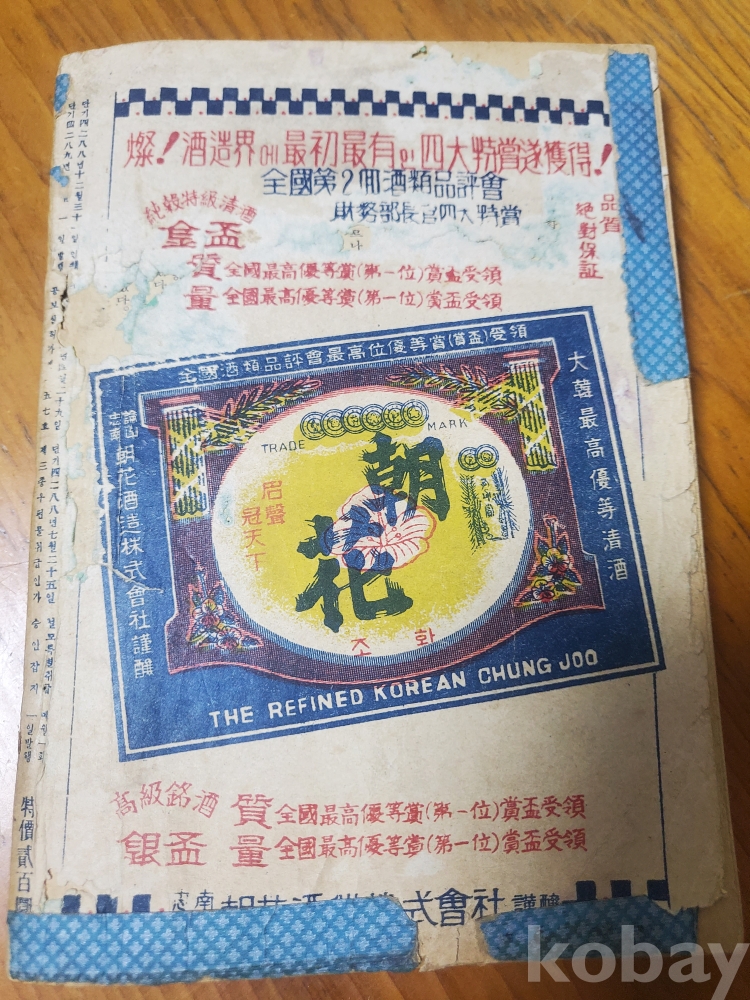 燦! 酒造界에 最初最有의 四大特賞遂獲得!
全國第2回酒類品評會
財務部長官四大特賞
品質
絶對保証
純穀特級清酒
金盃
質 全國最高優等賞(第一位)賞盃受領
量 全國最高優等賞(第一位)賞盃受領
全國酒類品評會最高位優等賞(賞盃)受領
大韓最高優等清酒
忠南
論山 朝花酒造株式會社謹釀
TRADE MARK
名聲
冠天下
朝花
조화
THE REFINED KOREAN CHUNG JOO
高級銘酒
銀盃
質 全國最高優等賞(第一位)賞盃受領
量 全國最高優等賞(第一位)賞盃受領
忠南 朝花酒造株式會社 謹釀
단기四二八八年十二月三十一일 인쇄
단기四二八九年
단기四二八八년七월二十五일
제三종우편물취급인가
승인잡지
매월一회
一일발행
特價貳百圜
kobay